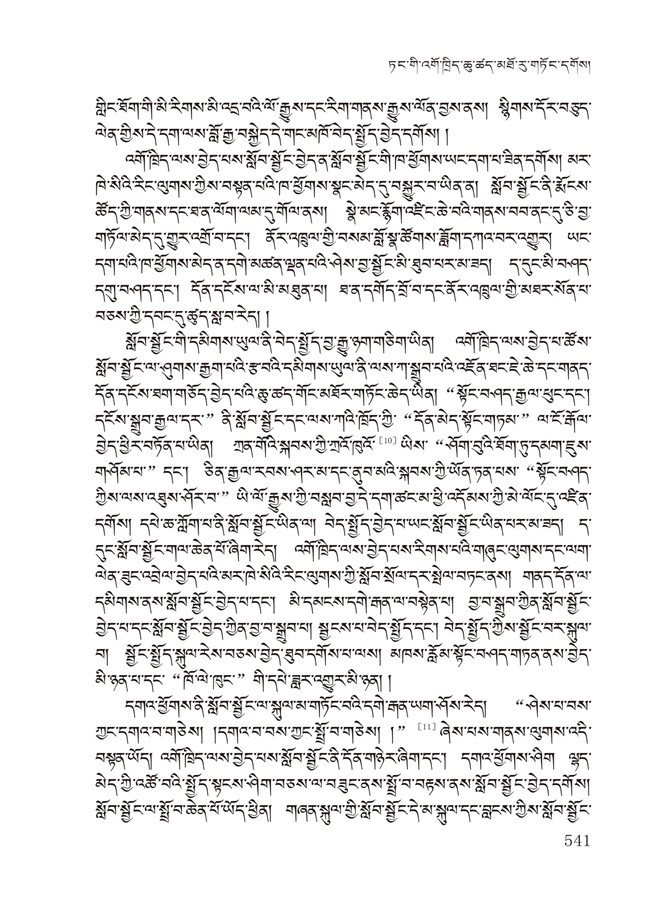 ཏང་གི་འགོ་ཁྲིད་ཆུ་ཚད་མཐོ་རུ་གཏོང་དགོས།
གླིང་ཐོག་གི་མི་རིགས་མི་འདྲ་བའི་ལོ་རྒྱུས་དང་རིག་གནས་རྒྱུས་ལོན་བྱས་ནས། སྙིགས་དོར་བཅུད་
ལེན་གྱིས་དེ་དག་ལས་བློ་རྒྱ་བསྐྱེད་དེ་གང་མཁོ་བེད་སྤྱོད་བྱེད་དགོས། །
འགོ་ཁྲིད་ལས་བྱེད་པས་སློབ་སྦྱོང་བྱེད་ན་སློབ་སྦྱོང་གི་ཁ་ཕྱོགས་ཡང་དག་པ་ཟིན་དགོས། མར་
ཁེ་སིའི་རིང་ལུགས་ཀྱིས་བསྟན་པའི་ཁ་ཕྱོགས་སྣང་མེད་དུ་བསྐྱུར་བ་ཡིན་ན། སློབ་སྦྱོང་ནི་རྨོངས་
ཚོད་ཀྱི་གནས་དང་ཐན་ལོག་ལམ་དུ་གོལ་ནས། སྣེ་མང་རྙོག་འཛིང་ཆེ་བའི་གནས་བབ་ནང་དུ་ཅི་བྱ་
གཏོལ་མེད་དུ་གྱུར་འགྲོ་བ་དང་། ནོར་འཁྲུལ་གྱི་བསམ་བློ་སྣ་ཚོགས་སློག་དཀའ་བར་འགྱུར། ཡང་
དག་པའི་ཁ་ཕྱོགས་མེད་ན་དགེ་མཚན་ལྡན་པའི་ཤེས་བྱ་སྦྱོང་མི་ཐུབ་པར་མ་ཟད། ད་དུང་མི་བཤད་
དགུ་བཤད་དང་། དོན་དངོས་ལ་མི་མཐུན་པ། ཐ་ན་དགོད་བྲོ་བ་དང་ནོར་འཁྲུལ་གྱི་མཐར་སོན་པ་
བཅས་ཀྱི་དབང་དུ་ཚུད་སླ་བ་རེད། །
སློབ་སྦྱོང་གི་དམིགས་ཡུལ་ནི་བེད་སྤྱོད་བྱ་རྒྱུ་ཉག་གཅིག་ཡིན། འགོ་ཁྲིད་ལས་བྱེད་པ་ཚོས་
སློབ་སྦྱོང་ལ་ཤུགས་རྒྱག་པའི་རྩ་བའི་དམིགས་ཡུལ་ནི་ལས་ཀ་སྒྲུབ་པའི་འཇོན་ཐང་ཇེ་ཆེ་དང་གནད་
དོན་དངོས་ཐག་གཅོད་བྱེད་པའི་ཆུ་ཚད་གོང་མཐོར་གཏོང་ཆེད་ཡིན། “སྟོང་བཤད་རྒྱལ་ཕུང་དང་།
དངོས་སྒྲུབ་རྒྱལ་དར་” ནི་སློབ་སྦྱོང་དང་ལས་ཀའི་ཁྲོད་ཀྱི་ “དོན་མེད་སྟོང་གཏམ་” ལ་ངོ་རྒོལ་
བྱེད་ཕྱིར་བཏོན་པ་ཡིན། ཀྲན་གོའི་སྐབས་ཀྱི་ཀྲའོ་ཁུའོ་[10] ཡིས་ “ཤོག་བུའི་ཐོག་ཏུ་དམག་ཇུས་
གཤོམ་པ་” དང་། ཅིན་རྒྱལ་རབས་ཤར་མ་དང་ནུབ་མའི་སྐབས་ཀྱི་ཡོན་ཏན་པས་ “སྟོང་བཤད་
ཀྱིས་ལས་འཐུས་ཤོར་བ་” ཡི་ལོ་རྒྱུས་ཀྱི་བསླབ་བྱ་དེ་དག་ཚང་མ་ཕྱི་འདོམས་ཀྱི་མེ་ལོང་དུ་འཛིན་
དགོས། དཔེ་ཆ་ཀློག་པ་ནི་སློབ་སྦྱོང་ཡིན་ལ། བེད་སྤྱོད་བྱེད་པ་ཡང་སློབ་སྦྱོང་ཡིན་པར་མ་ཟད། ད་
དུང་སློབ་སྦྱོང་གལ་ཆེན་པོ་ཞིག་རེད། འགོ་ཁྲིད་ལས་བྱེད་པས་རིགས་པའི་གཞུང་ལུགས་དང་ལག་
ལེན་ཟུང་འབྲེལ་བྱེད་པའི་མར་ཁེ་སིའི་རིང་ལུགས་ཀྱི་སློབ་སྲོལ་དར་སྤེལ་བཏང་ནས། གནད་དོན་ལ་
དམིགས་ནས་སློབ་སྦྱོང་བྱེད་པ་དང་། མི་དམངས་དགེ་རྒན་ལ་བསྟེན་པ། བྱ་བ་སྒྲུབ་ཀྱིན་སློབ་སྦྱོང་
བྱེད་པ་དང་སློབ་སྦྱོང་བྱེད་ཀྱིན་བྱ་བ་སྒྲུབ་པ། སྦྱངས་པ་བེད་སྤྱོད་དང་། བེད་སྤྱོད་ཀྱིས་སྦྱོང་བར་སྐུལ་
བ། སྦྱོང་སྤྱོད་སྐུལ་རེས་བཅས་བྱེད་ཐུབ་དགོས་པ་ལས། མཁས་རློམ་སྟོང་བཤད་གཏན་ནས་བྱེད་
མི་ཉན་པ་དང་ “ཁོ་ལེ་ཁུང་” གི་དཔེ་ཟླར་འགྱུར་མི་ཉན། །
དགའ་ཕྱོགས་ནི་སློབ་སྦྱོང་ལ་སྐུལ་མ་གཏོང་བའི་དགེ་རྒན་ཡག་ཤོས་རེད། “ཤེས་པ་བས་
ཀྱང་དགའ་བ་གཅེས། །དགའ་བ་བས་ཀྱང་སྤྲོ་བ་གཅེས། །” [11] ཞེས་པས་གནས་ལུགས་འདི་
བསྟན་ཡོད། འགོ་ཁྲིད་ལས་བྱེད་པས་སློབ་སྦྱོང་ནི་དོན་གཉེར་ཞིག་དང་། དགའ་ཕྱོགས་ཤིག ལྷད་
མེད་ཀྱི་འཚོ་བའི་སྤྱོད་སྟངས་ཤིག་བཅས་ལ་བཟུང་ནས་སྤྲོ་བ་བརྟས་ནས་སློབ་སྦྱོང་བྱེད་དགོས།
སློབ་སྦྱོང་ལ་སྤྲོ་བ་ཆེན་པོ་ཡོད་ཕྱིན། གཞན་སྐུལ་གྱི་སློབ་སྦྱོང་དེ་མ་སྐུལ་དང་བླངས་ཀྱིས་སློབ་སྦྱོང་
541